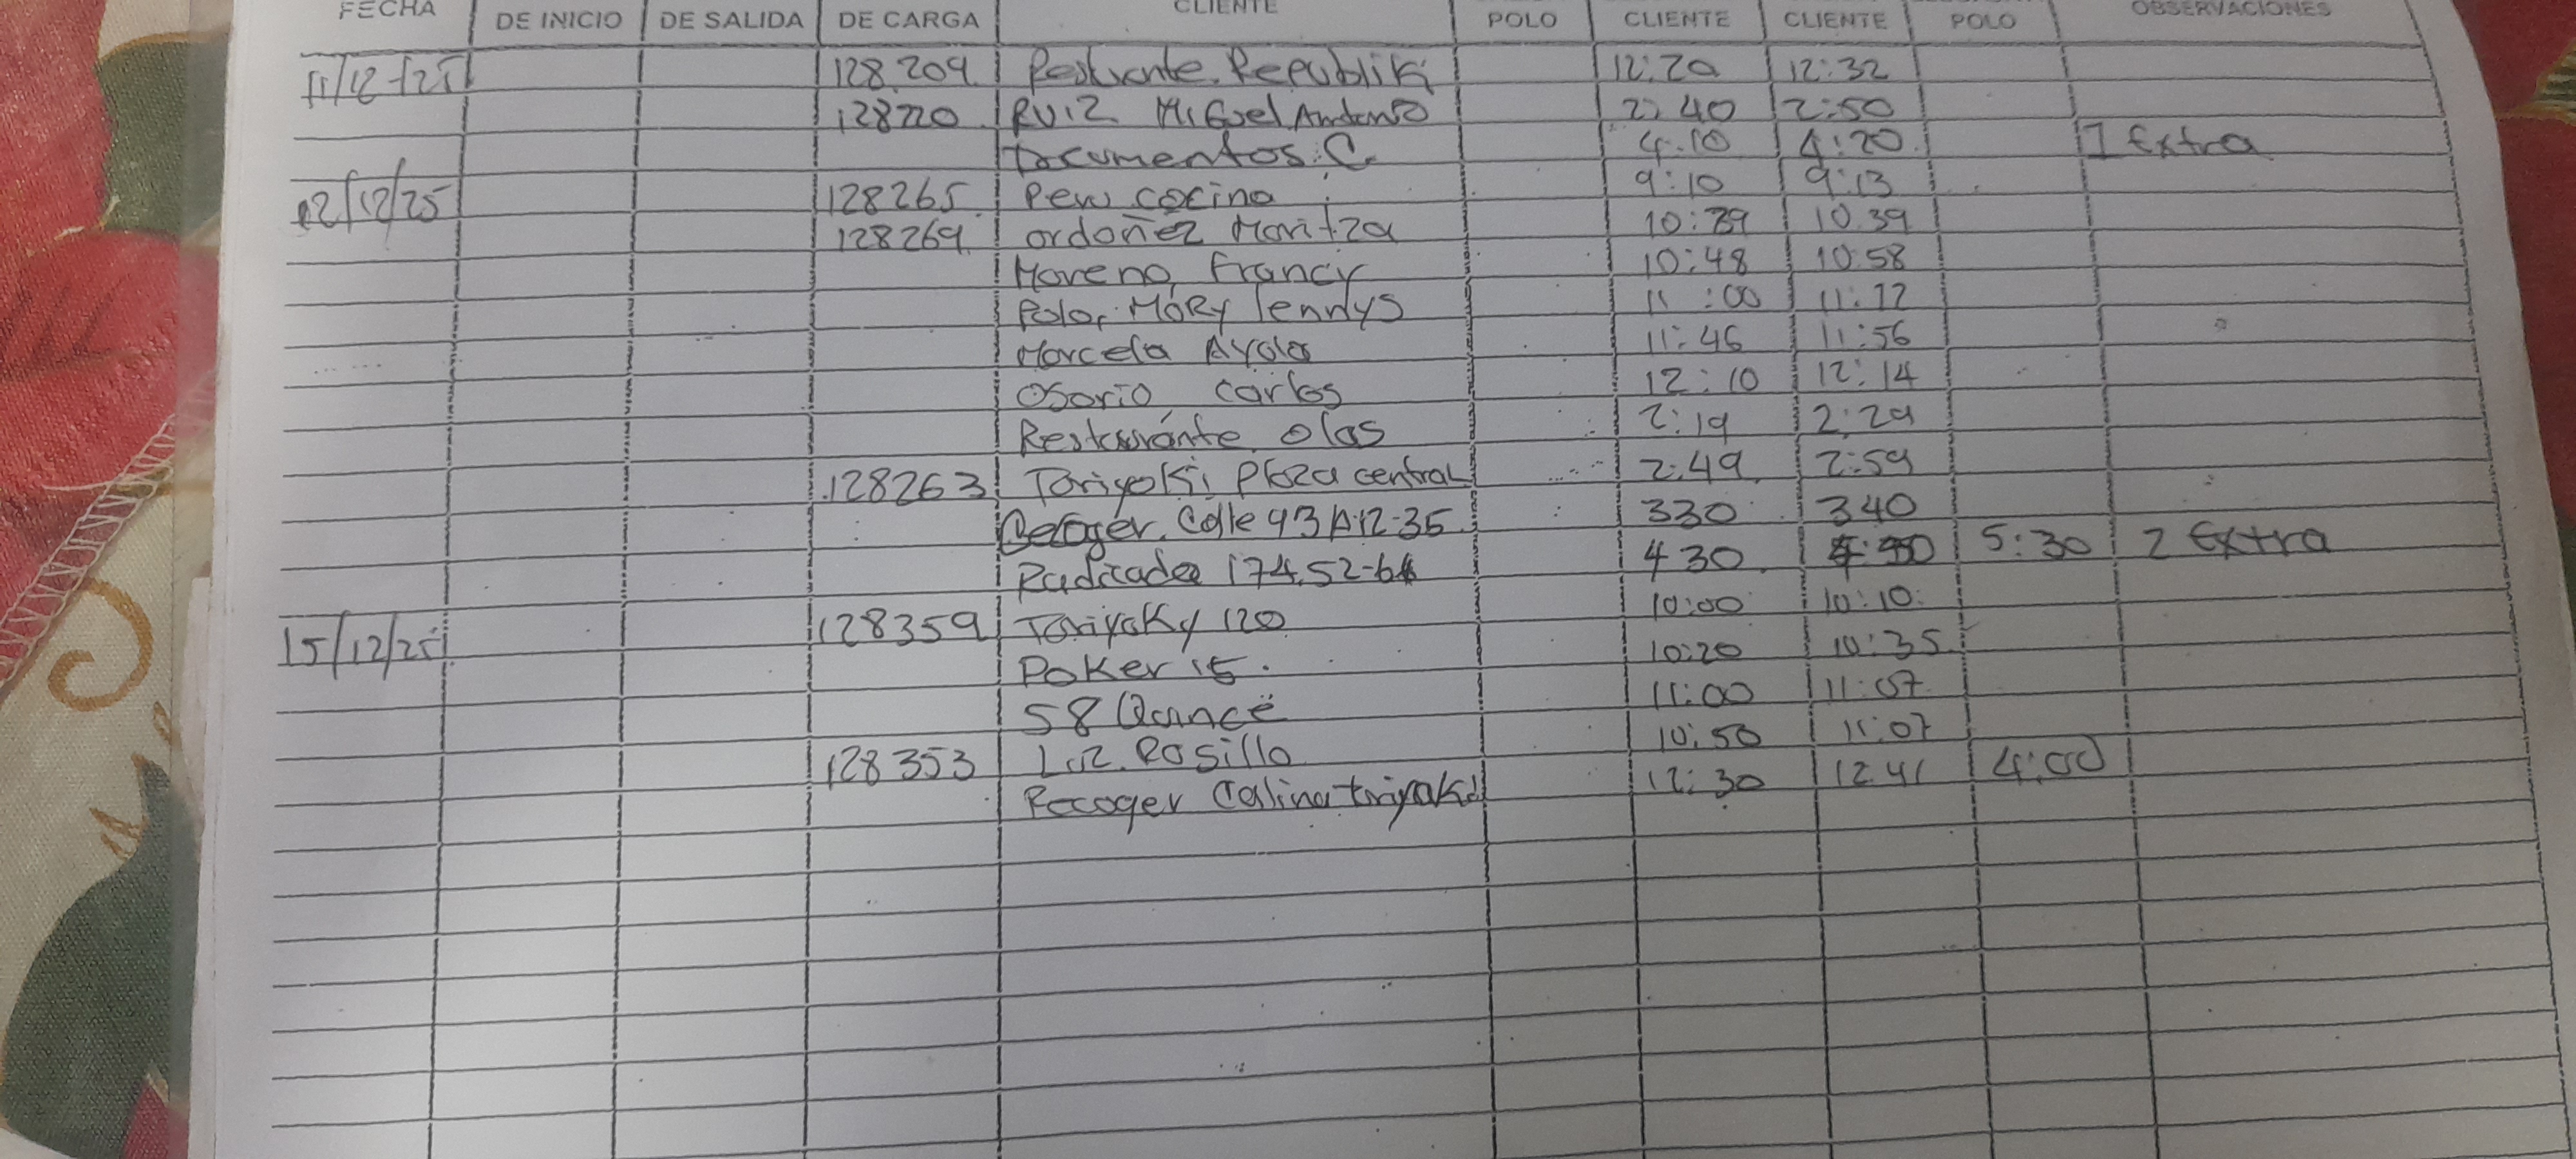 FECHA DE INICIO DE SALIDA DE CARGA CLIENTE POLO CLIENTE CLIENTE POLO OBSERVACIONES
11/12/25 128.209 Resturante. Republik 12:20 12:32
128220 RUIZ Miguel Antonio 2:40 2:50
Documentos. C. 4:10 4:20 1 Extra
12/12/25 128265 Peru cocina 9:10 9:13
128269 ordoñez Maritza 10:29 10:39
Moreno Francy 10:48 10:58
Polo, MORY lennys 11:00 11:12
Marcela Ayola 11:46 11:56
Osorio Carlos 12:10 12:14
Restaurante olas 2:19 2:29
128263 Toriyoki Plaza central 2:49 2:59
Recoger. Calle 93A·12-35 330 340
Radicado 174.52-6 430 5:30 2 Extra
15/12/25 128359 Toriyaky 120 10:00 10:10
Poker 15. 10:20 10:35
58 Quince 11:00 11:07
128353 Luz. Rosillo 10:50 11:07
Recoger Calina 12:30 12 41 4:00